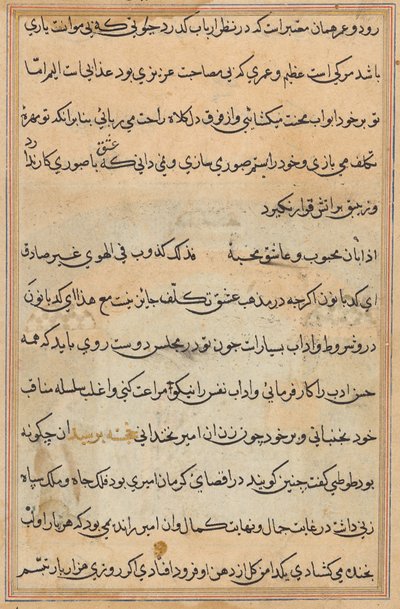 رود و عمر همان معتبر است که در نظر ارباب کدرد جلونی که بی موانست یاری
باشد مرکی است عظیم و عمری که بی مصاحبت عزیزی بود عذابی است الیم اما
تو بر خود ابواب محنت میکشائی و از فرق دل کلاه راحت می ربائی بنابرانکه تو مهره
تکلف می بازی و خود را بستم صبوری سازی و نمی دانی که عشق با صبوری کار ندارد
و زیبق بر آتش قرار نکیرد
اذا بان محبوب و عاشق محبة فذلک کذوب فی الهوی غیر صادق
ای کدبانون اکرچه در مذهب عشق تکلف جائز نیست مع هذا ای کدبانون
در و شروط و اداب بسیار است چون تو در مجلس دوست روی باید که همه
حسن ادب را کار فرمائی و اداب نفس را نیکو مراعت کنی و اغلب سلسله مناقب
خود نجنبانی و بر خود چون زن ان امیر نخندانی خجسته پرسید ان چکونه
بود طوطی کفت چنین کویند در اقصای کرمان امیری بود فلک جاه و ملک سپاه
زنی داشت در غایت جمال و نهایت کمال و ان امیر را ندیمی بود که هر بار او لب
بخنده می کشادی یکدامن کل از دهن او فرود افتادی اکر روزی هزار بار تبسم